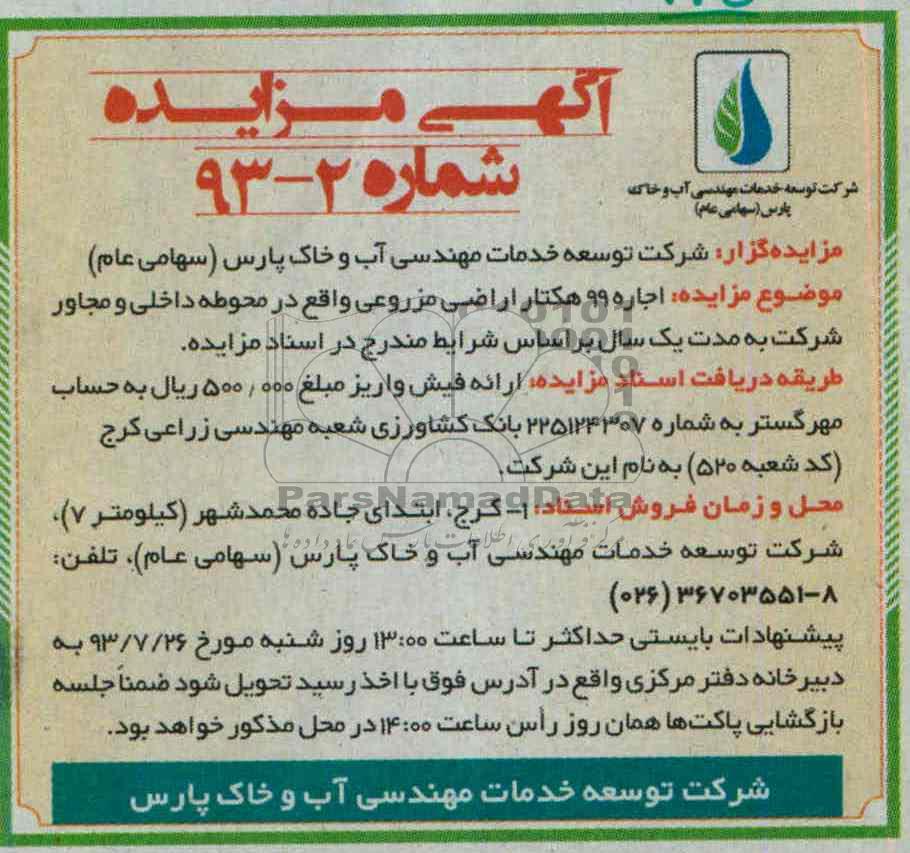 آگهی مزایده
شماره ۲-۹۳
شرکت توسعه خدمات مهندسی آب و خاک
پارس (سهامی عام)
مزایده‌گزار: شرکت توسعه خدمات مهندسی آب و خاک پارس (سهامی عام)
موضوع مزایده: اجاره ۹۹ هکتار اراضی مزروعی واقع در محوطه داخلی و مجاور
شرکت به مدت یک سال براساس شرایط مندرج در اسناد مزایده.
طریقه دریافت اسناد مزایده: ارائه فیش واریز مبلغ ۵۰۰/۰۰۰ ریال به حساب
مهرگستر به شماره ۲۲۵۱۲۴۳۰۷ بانک کشاورزی شعبه مهندسی زراعی کرج
(کد شعبه ۵۲۰) به نام این شرکت.
ParsNamadData
محل و زمان فروش اسناد: ۱- کرج، ابتدای جاده محمدشهر (کیلومتر ۷)،
شرکت توسعه خدمات مهندسی آب و خاک پارس (سهامی عام)، تلفن:
۸-۳۶۷۰۳۵۵۱ (۰۲۶)
پیشنهادات بایستی حداکثر تا ساعت ۱۳:۰۰ روز شنبه مورخ ۹۳/۷/۲۶ به
دبیرخانه دفتر مرکزی واقع در آدرس فوق با اخذ رسید تحویل شود ضمناً جلسه
بازگشایی پاکت‌ها همان روز رأس ساعت ۱۴:۰۰ در محل مذکور خواهد بود.
شرکت توسعه خدمات مهندسی آب و خاک پارس